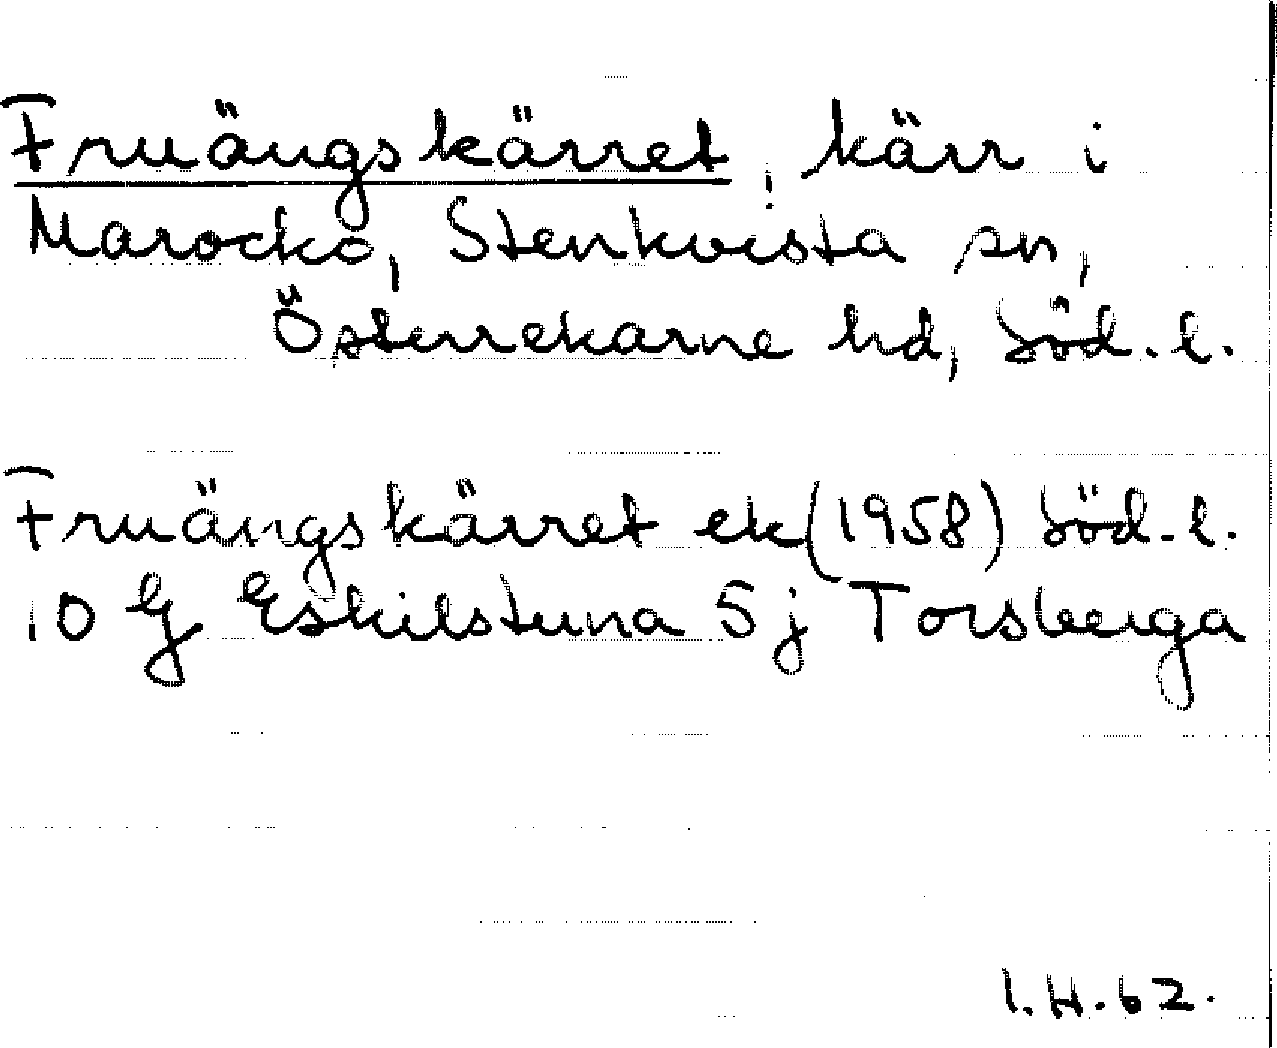 Fruängskärret, kärr i
Marocko, Stenkvista sn,
Österrekarne hd, Söd. l.
Fruängskärret ek (1958) Söd. l.
10 G Eskilstuna 5 j Torsberga
I.H. 62.